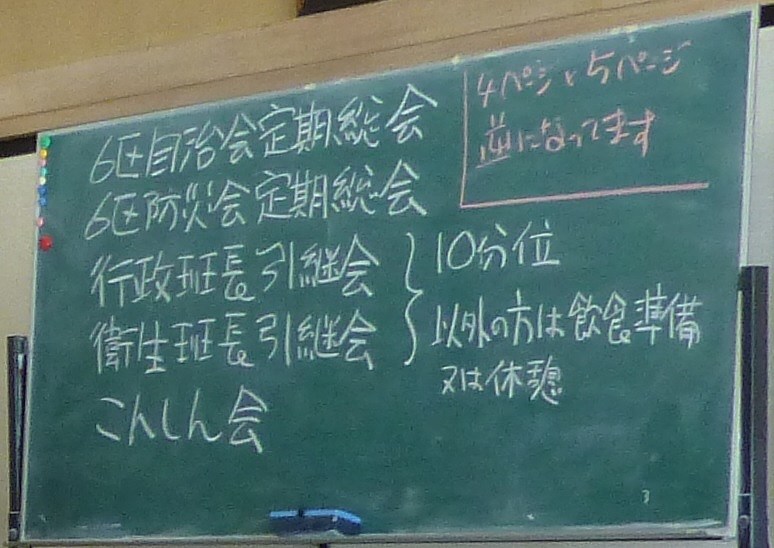 6区自治会定期総会
6区防災会定期総会
行政班長引継会
衛生班長引継会
こんしん会
10分位
以外の方は飲食準備
又は休憩
4ページと5ページ
逆になってます